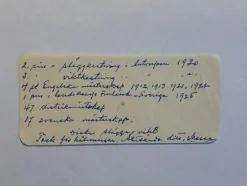 2 pris i släggkastning i Antwerpen 1920
3 " viktkastning " " "
4 st Engelska mästerskap 1912, 1913 1920, 1922
1 pris i landskamp Finland - Sverige 1925
47 distriktmästerskap
17 svenska mästerskap.
slägga vikt
Tack för